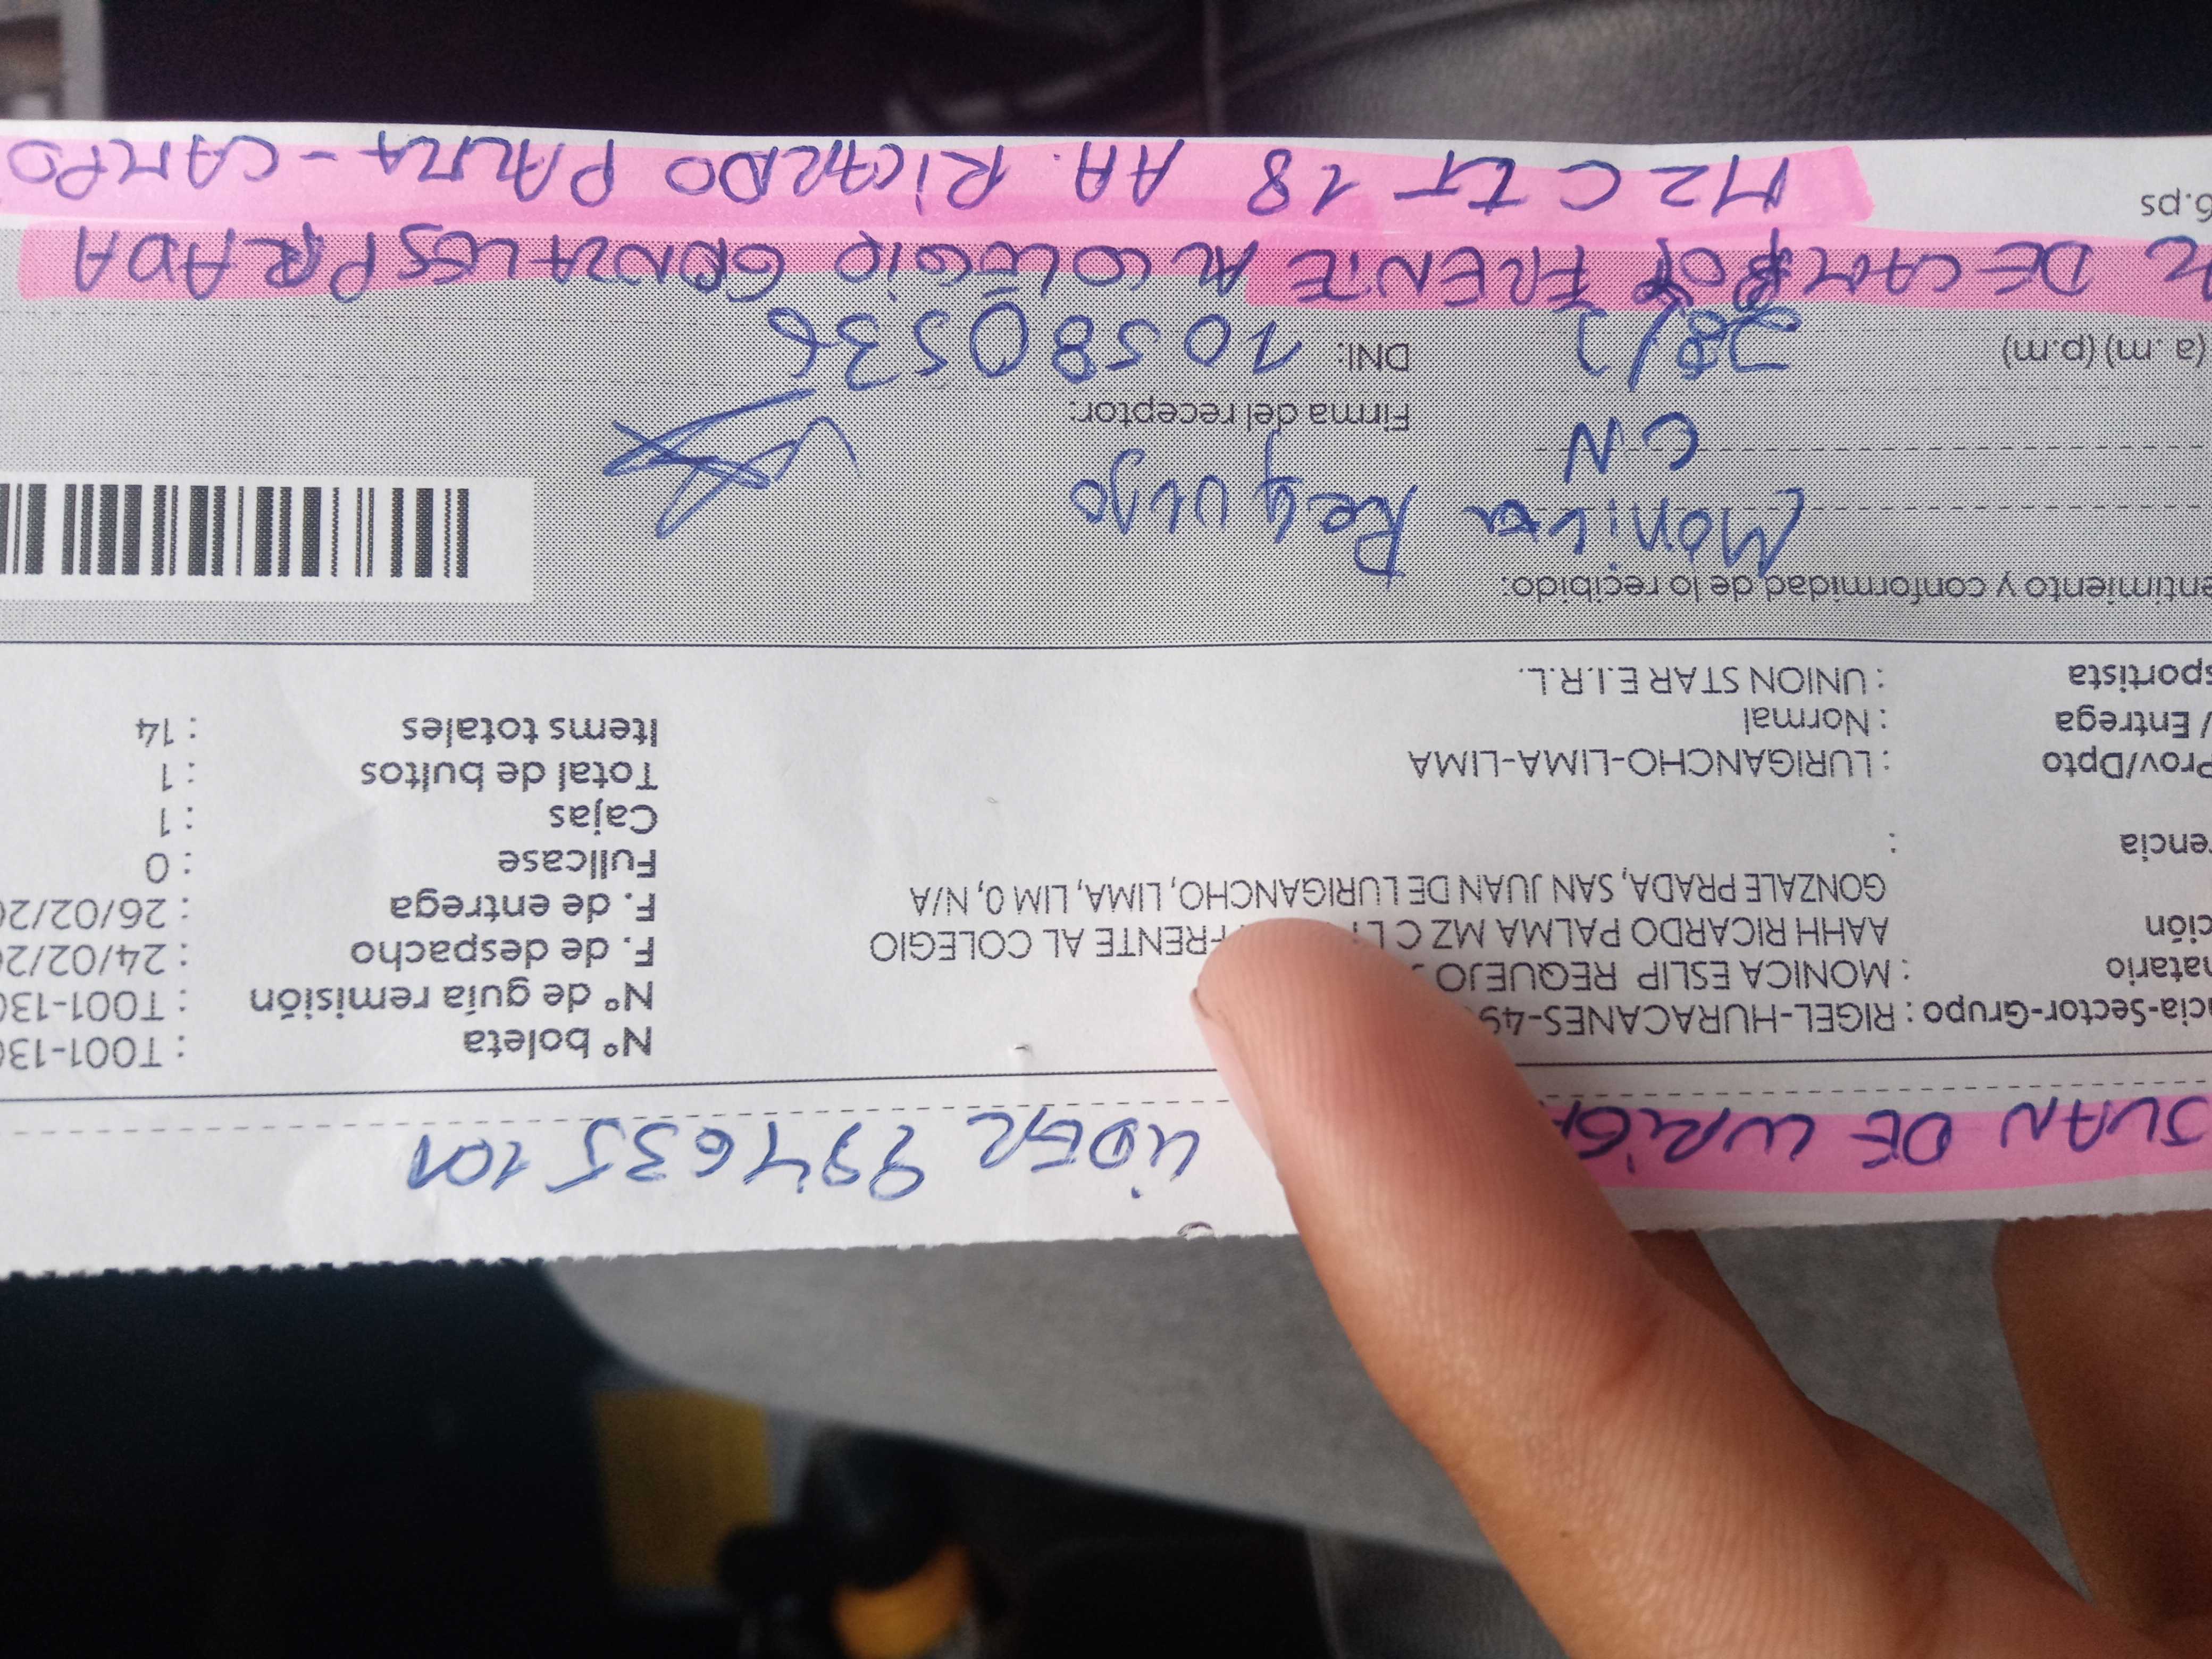 JUAN DE LURIGA LIDER 994635101
cia-Sector-Grupo : RIGEL-HURACANES-49
Nº boleta : T001-130
natario : MONICA ESLIP REQUEJO
Nº de guía remisión : T001-130
ción AAHH RICARDO PALMA MZ C LT FRENTE AL COLEGIO
F. de despacho : 24/02/20
GONZALE PRADA, SAN JUAN DE LURIGANCHO, LIMA, LIM 0, N/A
F. de entrega : 26/02/20
rencia :
Fullcase : 0
Cajas : 1
Prov/Dpto : LURIGANCHO-LIMA-LIMA
Total de bultos : 1
/ Entrega : Normal
Items totales : 14
sportista : UNION STAR E.I.R.L.
entimiento y conformidad de lo recibido:
Monica Requejo
CN
Firma del receptor:
(a.m) (p.m) 28/2 DNI: 10580536
DE CAMPO FRENTE AL COLEGIO GONZALES PRADA
6.ps MZ C LT 18 AA. RICARDO PALMA - CAMPO